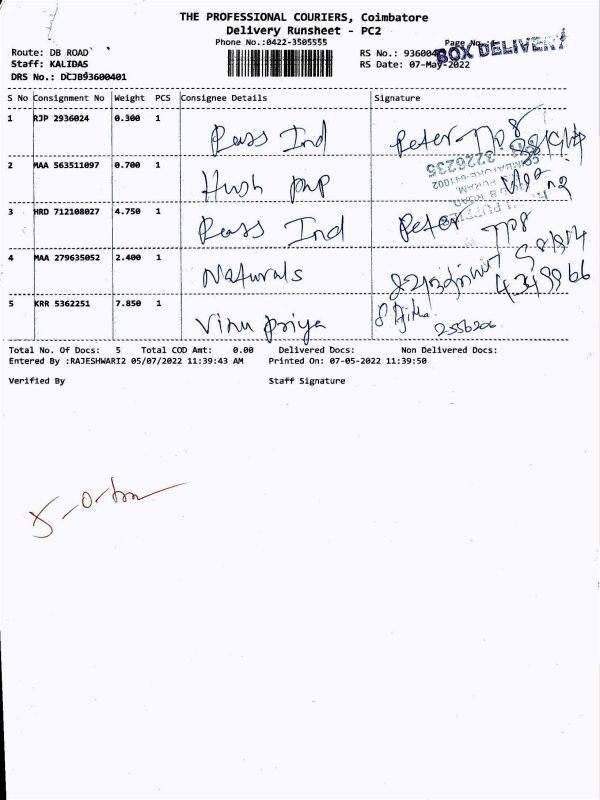 THE PROFESSIONAL COURIERS, Coimbatore
Delivery Runsheet - PC2
Phone No.:0422-3505555
BOX DELIVERY
Route: DB ROAD
RS No.: 93600
Staff: KALIDAS
RS Date: 07-May-2022
DRS No.: DCJB93600401
S No Consignment No Weight PCS Consignee Details Signature
1 RJP 2936024 0.300 1 Pass Ind Peter
2 MAA 563511097 0.700 1 Hush pup
3226235
COIMBATORE-641002
3 HRD 712108027 4.750 1 Pass Ind Peter
4 MAA 279635052 2.400 1 Naturals
5 KRR 5362251 7.850 1 Vinu priya
2556206
Total No. Of Docs: 5 Total COD Amt: 0.00 Delivered Docs: Non Delivered Docs:
Entered By :RAJESHWARI2 05/07/2022 11:39:43 AM Printed On: 07-05-2022 11:39:50
Verified By Staff Signature